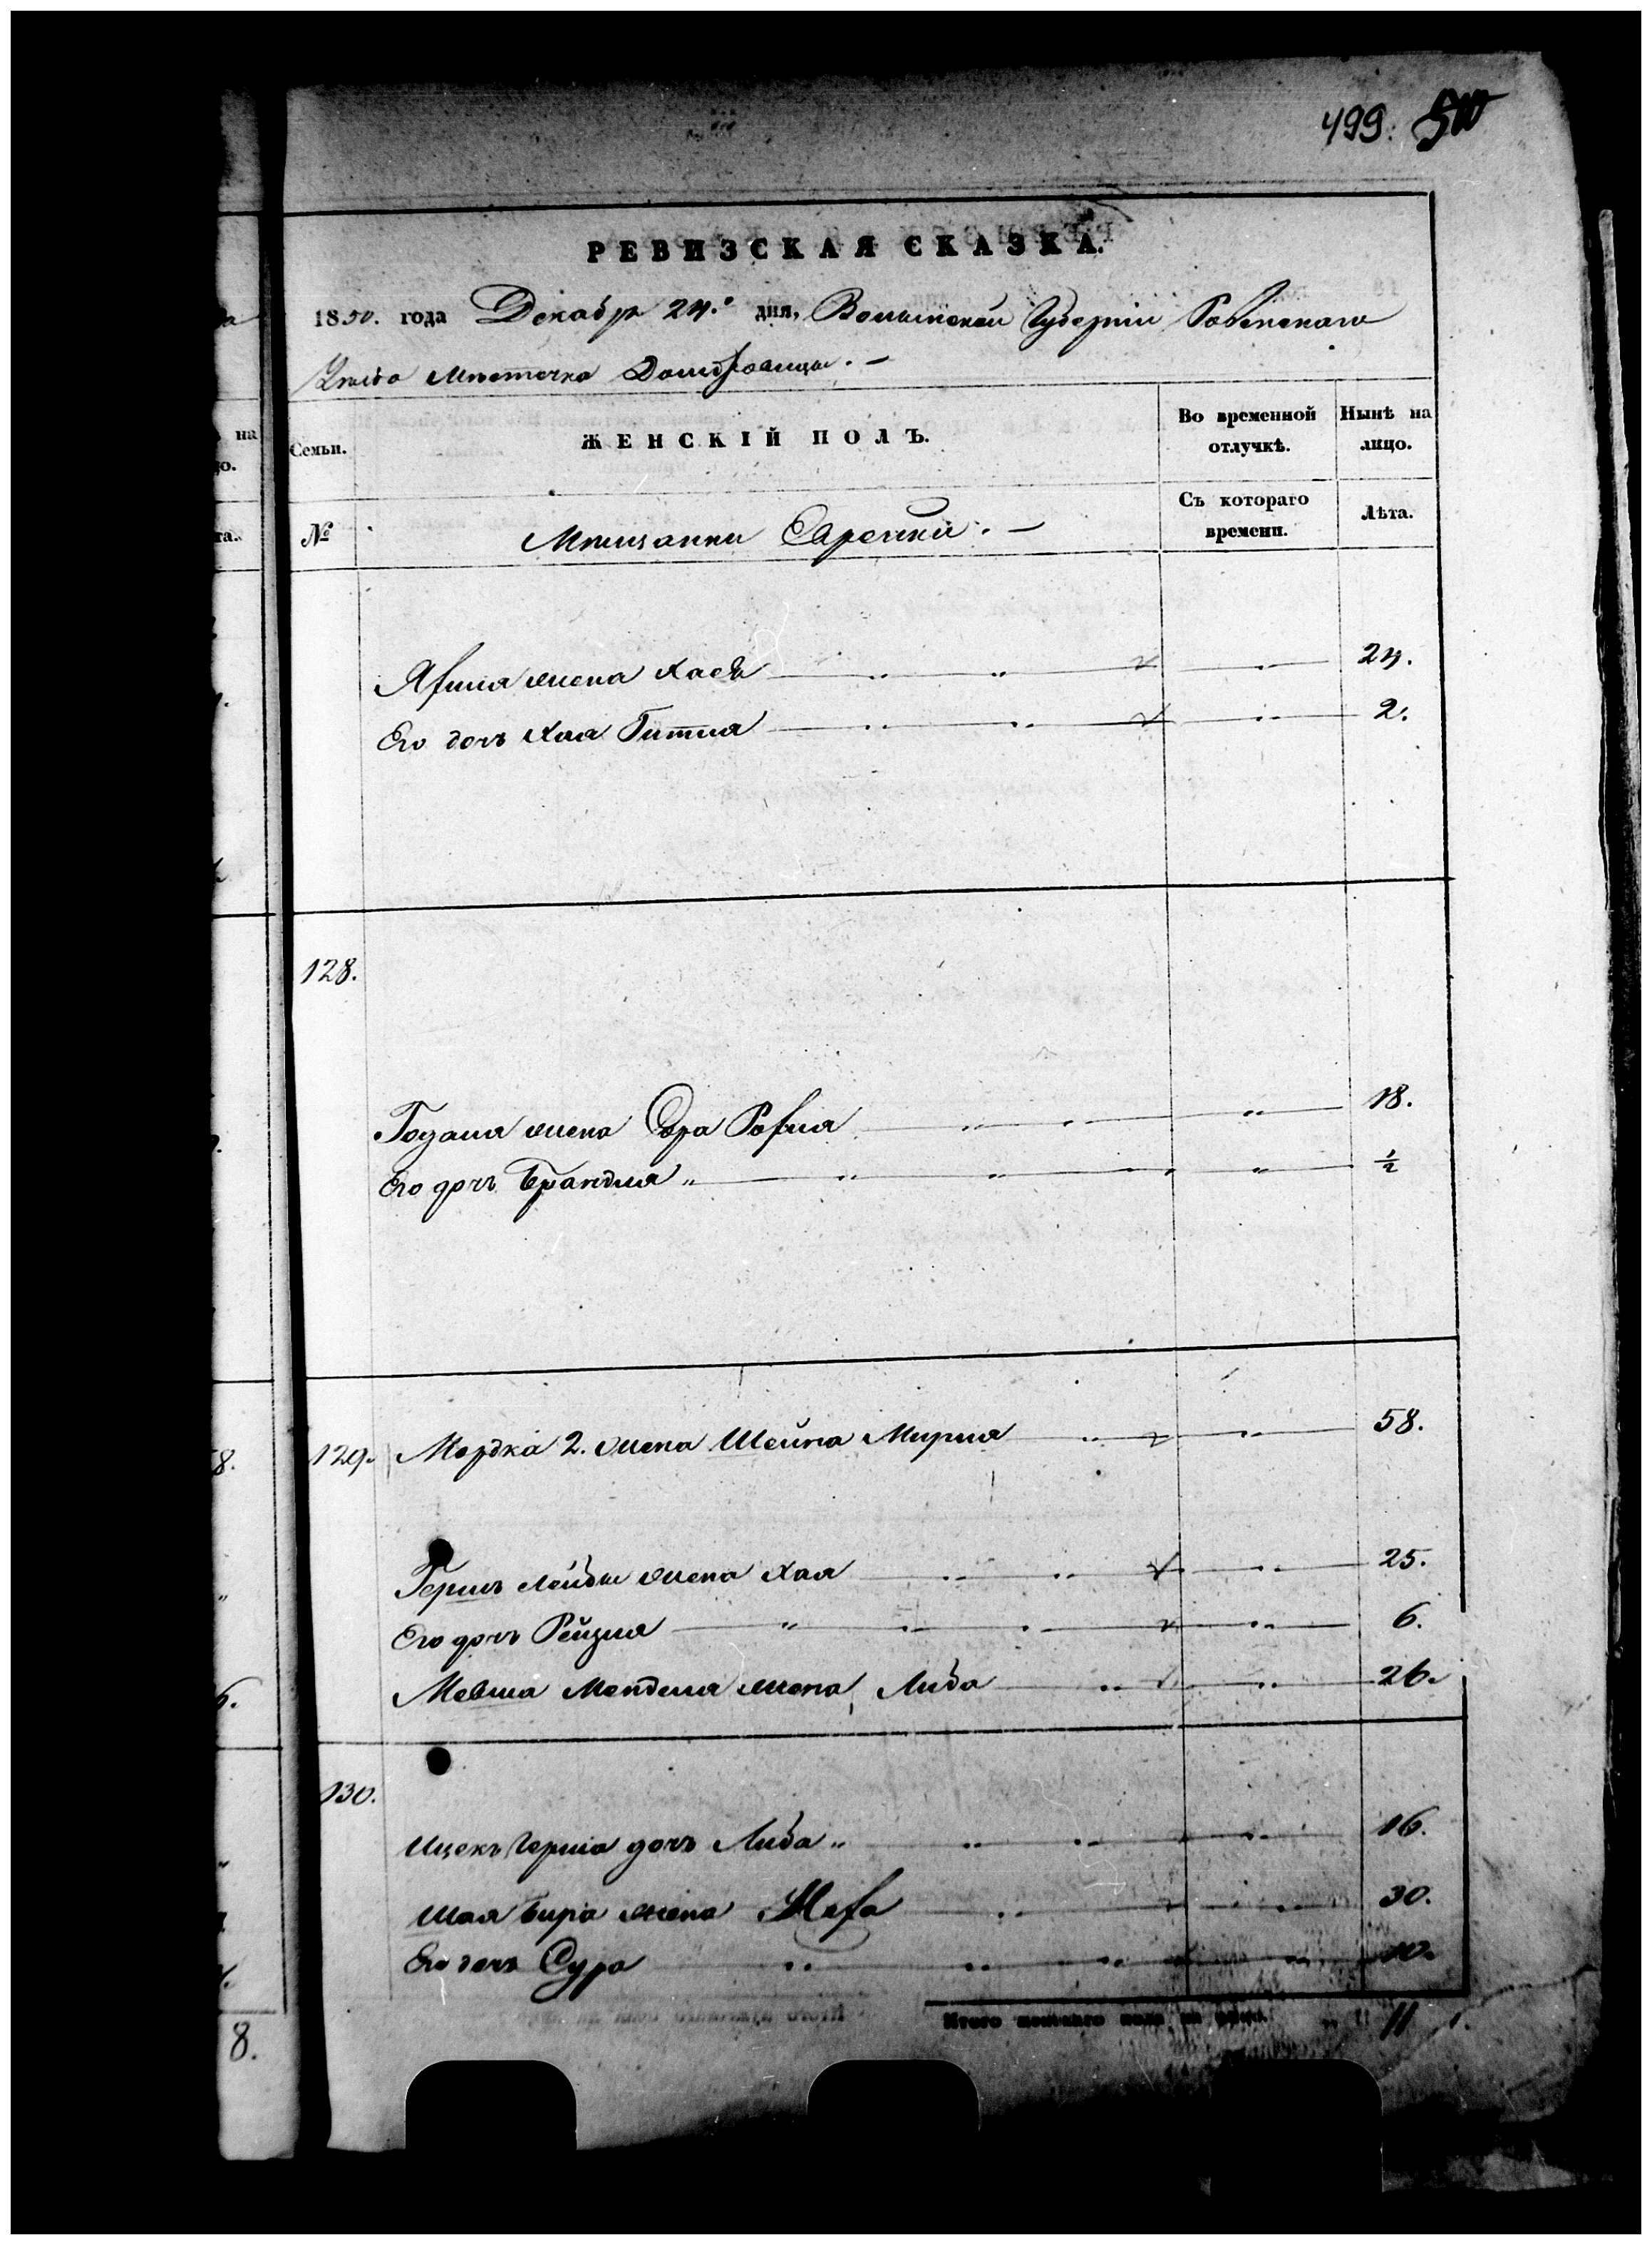 499. 500
РЕВИЗСКАЯ СКАЗКА.
1850. года Декабря 24.го дня, Волынской Губерніи Ровенскаго
Уѣзда Мѣстечка Домбровицы. —
Семьи. ЖЕНСКІЙ ПОЛЪ. Во временной отлучкѣ. Нынѣ на лицо.
№ Мѣщанки Еврейки. — Съ котораго времени. Лѣта.
жена Хася 24.
Его дочь Хая Гитля 2.
128.
жена Сора 18.
Его дочь Брандля 1/2
129. Мордка 2. жена Шейна Мирля 58.
Гершъ Лейбы жена Хая 25.
Его дочь Рейзля 6.
Мевша Менделя жена Либа 26.
130.
Ицекъ Герша дочь Либа 16.
Шая Бира жена 30.
Его дочь Сура 10.
Итого женскаго пола на лицо. 11
8.